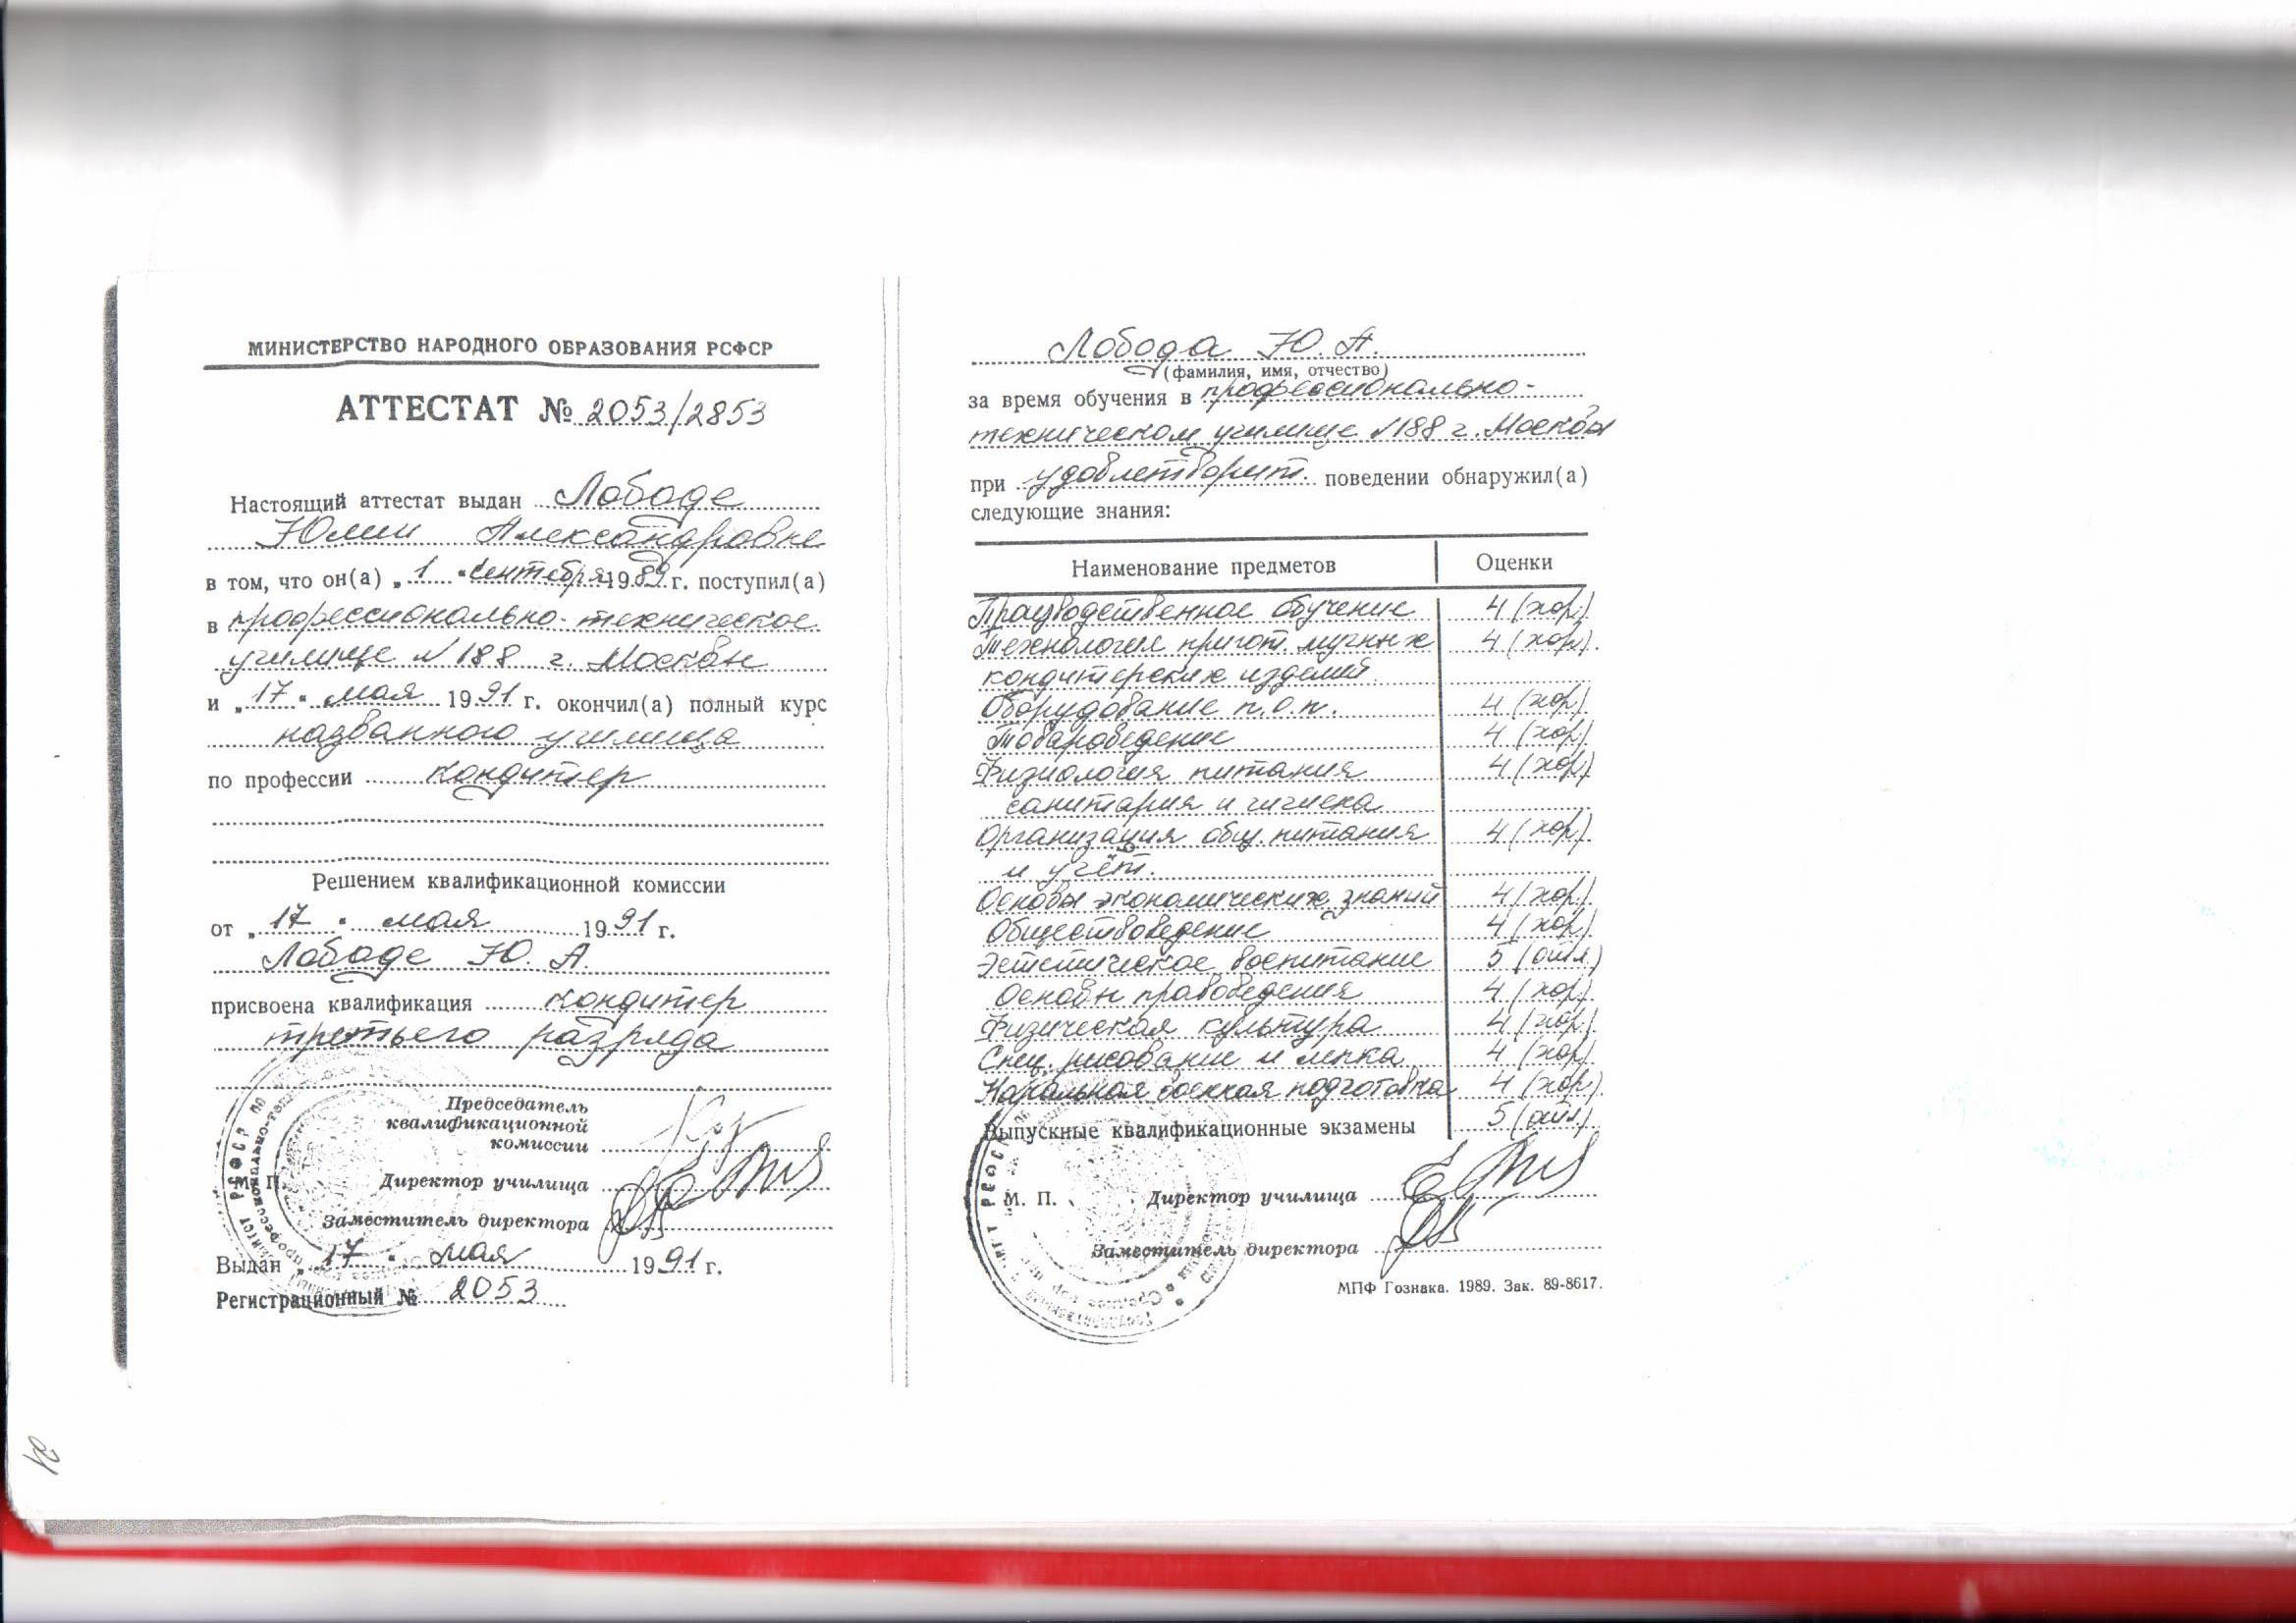 МИНИСТЕРСТВО НАРОДНОГО ОБРАЗОВАНИЯ РСФСР
АТТЕСТАТ № 2053/2853
Настоящий аттестат выдан Лободе
Юлии Александровне
в том, что он(а) „1" сентября 1989 г. поступил(а)
в профессионально-техническое
училище №188 г. Москвы
и „17" мая 1991 г. окончил(а) полный курс
названного училища
по профессии кондитер
Решением квалификационной комиссии
от „17" мая 1991 г.
Лободе Ю. А.
присвоена квалификация кондитер
третьего разряда
Председатель
квалификационной
комиссии
М. П. Директор училища
Заместитель директора
Выдан „17" мая 1991 г.
Регистрационный № 2053
Лобода Ю. А.
(фамилия, имя, отчество)
за время обучения в профессионально-
техническом училище №188 г. Москвы
при удовлетворит. поведении обнаружил(а)
следующие знания:
Наименование предметов Оценки
Производственное обучение 4 (хор.)
Технология пригот. мучных 4 (хор.)
кондитерских изделий
Оборудование п.о.п. 4 (хор.)
Товароведение 4 (хор.)
Физиология питания 4 (хор.)
санитария и гигиена
Организация общ. питания 4 (хор.)
и учёт.
Основы экономических знаний 4 (хор.)
Обществоведение 4 (хор.)
Эстетическое воспитание 5 (отл.)
Основы правоведения 4 (хор.)
Физическая культура 4 (хор.)
Спец. рисование и лепка 4 (хор.)
Начальная военная подготовка 4 (хор.)
Выпускные квалификационные экзамены 5 (отл.)
М. П. Директор училища
Заместитель директора
МПФ Гознака. 1989. Зак. 89-8617.